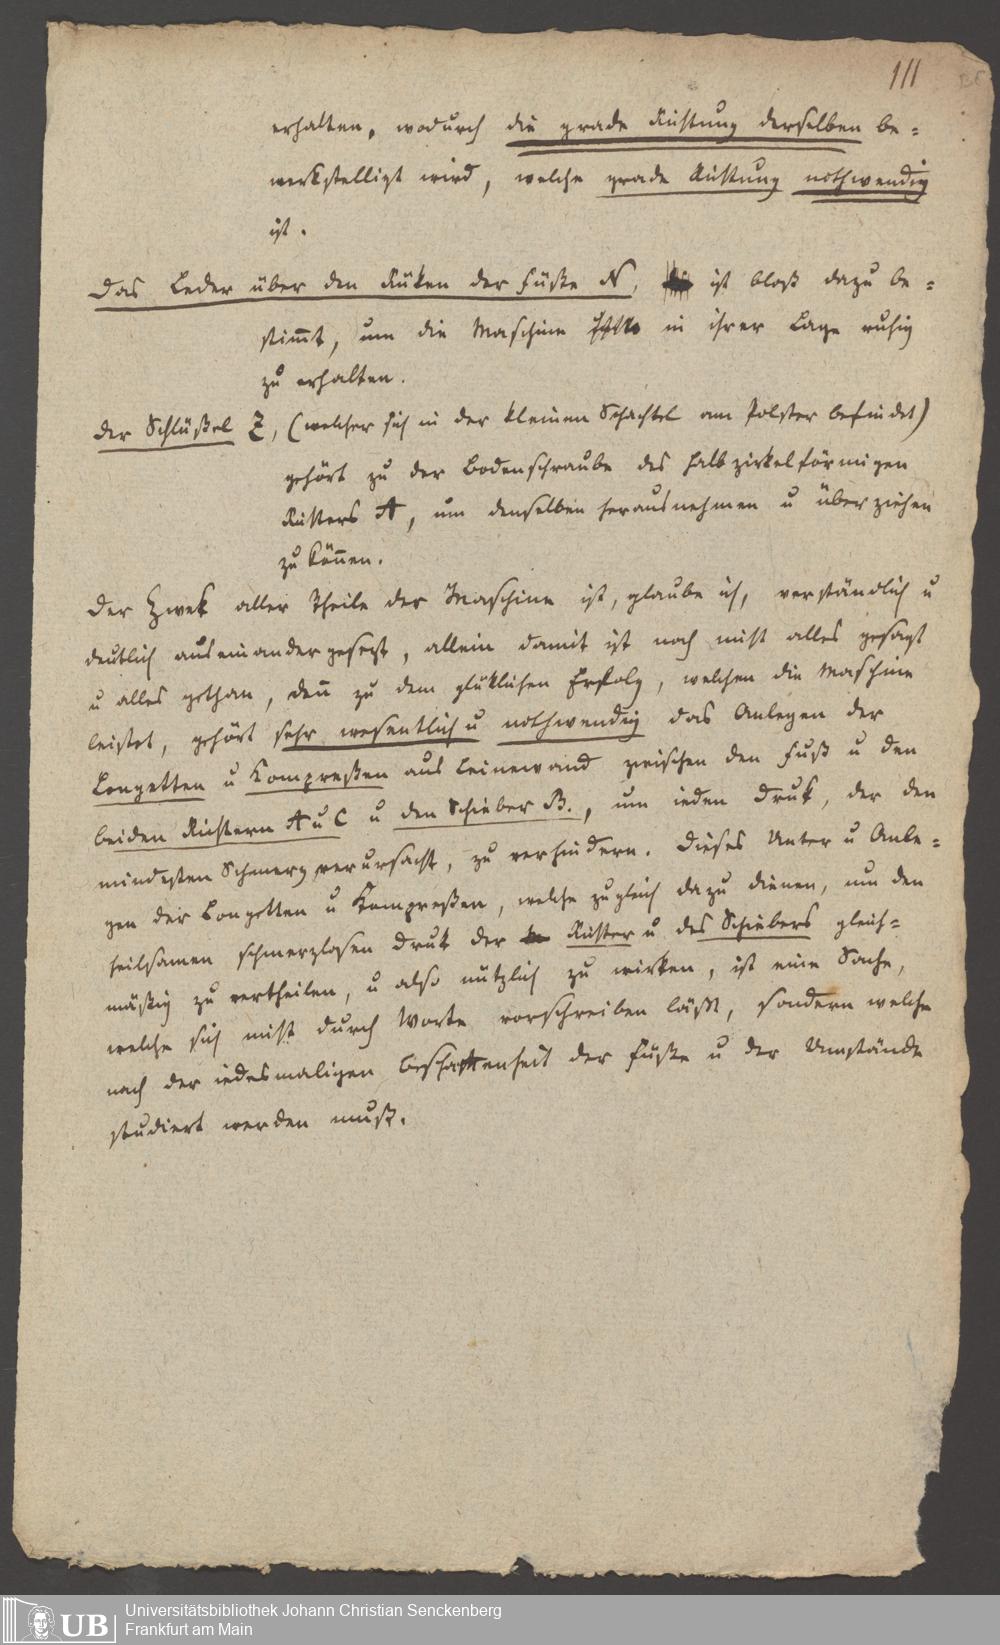 111
erhalten, wodurch die grade Richtung derselben be=
werkstelligt wird, welche grade Richtung nothwendig
ist.
Das Leder über den Rüken der Füße N, ist bloß dazu be=
stim̅t, um die Maschine in ihrer Lage ruhig
zu erhalten.
Der Schlüßel Z, (welcher sich in der kleinen Schachtel am Polster befindet)
gehört zu der Bodenschraube des halbzirkelförmigen
Richters A, um denselben herausnehmen u überziehen
zu kön̅en.
Der Zwek aller Theile der Maschine ist, glaube ich, verständlich u
deutlich auseinandergesezt, allein damit ist noch nicht alles gesagt
u alles gethan, den̅ zu dem glüklichen Erfolg, welchen die Maschine
leistet, gehört sehr wesentlich u nothwendig das Anlegen der
Longetten u Kompreßen aus Leinewand zwischen den Fuß u den
beiden Richtern A u C u den Schieber B., um ieden Druk, der den
mindesten Schmerz verursacht, zu verhindern. Dieses Unter u Anle=
gen der Longetten u Kompreßen, welche zugleich dazu dienen, um den
heilsamen schmerzlosen Druk der Richter u des Schiebers gleich=
mäßig zu vertheilen, u also nützlich zu wirken, ist eine Sache,
welche sich nicht durch Worte vorschreiben läßt, sondern welche
nach der iedesmaligen Beschaffenheit der Füße u der Umstände
studiert werden muß.
UB
Universitätsbibliothek Johann Christian Senckenberg
Frankfurt am Main